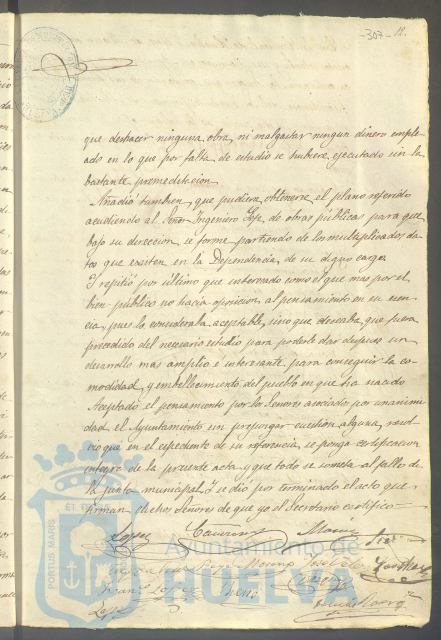 -307- 12.
que deshacer ninguna obra, ni malgastar ningun dinero emple-
ado en lo que por falta de estudio se hubiere ejecutado sin la
bastante premeditacion.
Añadió tambien, que pudiera obtenerse el plano referido
acudiendo al Señor Ingeniero Gefe de obras públicas para que
bajo su direccion, se forme partiendo de los multiplicados da-
tos que existen en la Dependencia, de su digno cargo.
Y repitió por último que interesado como el que mas por el
bien publico no hacia oposicion al pensamiento en su esen-
cia, pues lo consideraba aceptable, sino que deseaba que fuera
precedido del necesario estudio para poderle dar despues un
desarrollo mas amplio é interesante, para conseguir la co-
modidad, y embellecimiento del pueblo en que ha nacido
Aceptado el pensamiento por los Señores asociados por unanimi-
dad, el Ayuntamiento sin prejuzgar cuestion alguna, resol-
vió que en el espediente de su referencia, se ponga certificacion
integra de la presente acta y que todo se someta al fallo de
la junta municipal. Y se dio por terminado el acto que
firman dichos Señores de que yo el Secretario certifico=
Lopez
Ayuntamiento de
HUELVA
PORTUS MARIS